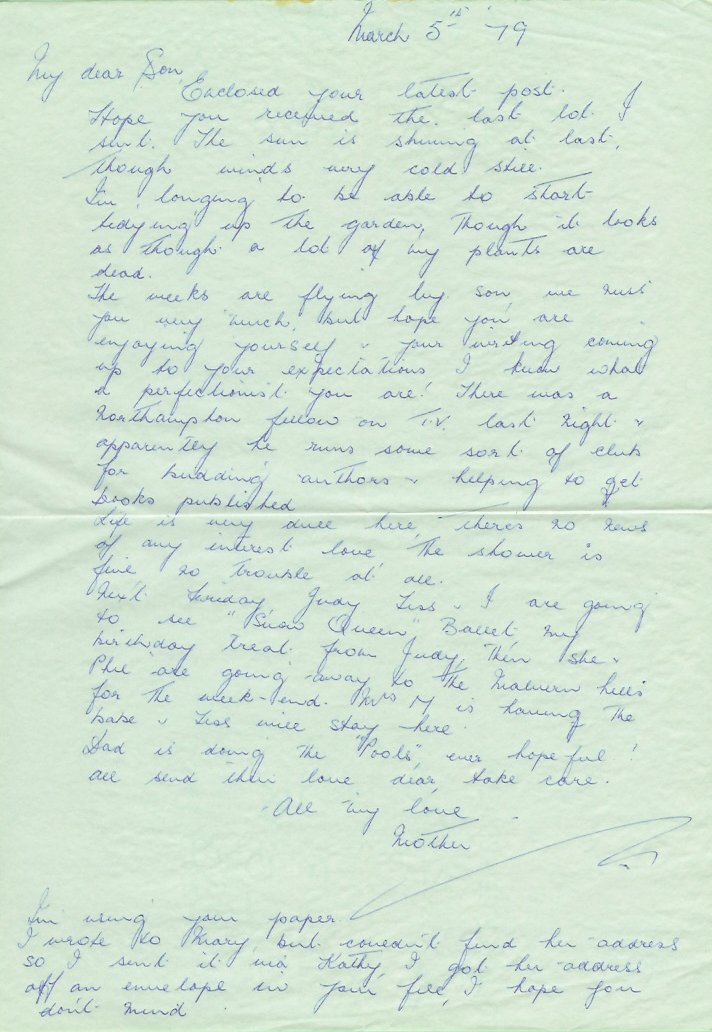 March 5th '79
My dear Son,
Enclosed your latest post.
Hope you received the last lot I
sent. The sun is shining at last,
though winds very cold still.
I'm longing to be able to start
tidying up the garden, though it looks
as though a lot of my plants are
dead.
The weeks are flying by, son, we miss
you very much, but hope you are
enjoying yourself & your writing coming
up to your expectations I know what
a perfectionist you are! There was a
Northampton fellow on T.V. last night &
apparently he runs some sort of club
for budding authors & helping to get
books published
Life is very dull here, theres no news
of any interest love. The shower is
fine no trouble at all.
Next Friday Judy Liss & I are going
to see "Snow Queen" Ballet, my
birthday treat from Judy, then she &
Phil are going away to the Malvern hills
for the week-end. Mrs M is having the
babe & Liss will stay here.
Dad is doing the "Pools", ever hopeful!
all send their love dear, take care.
All my love
Mother
I'm using your paper.
I wrote to Mary, but couldn't find her address
so I sent it via Kathy, I got her address
off an envelope in your file, I hope you
don't mind